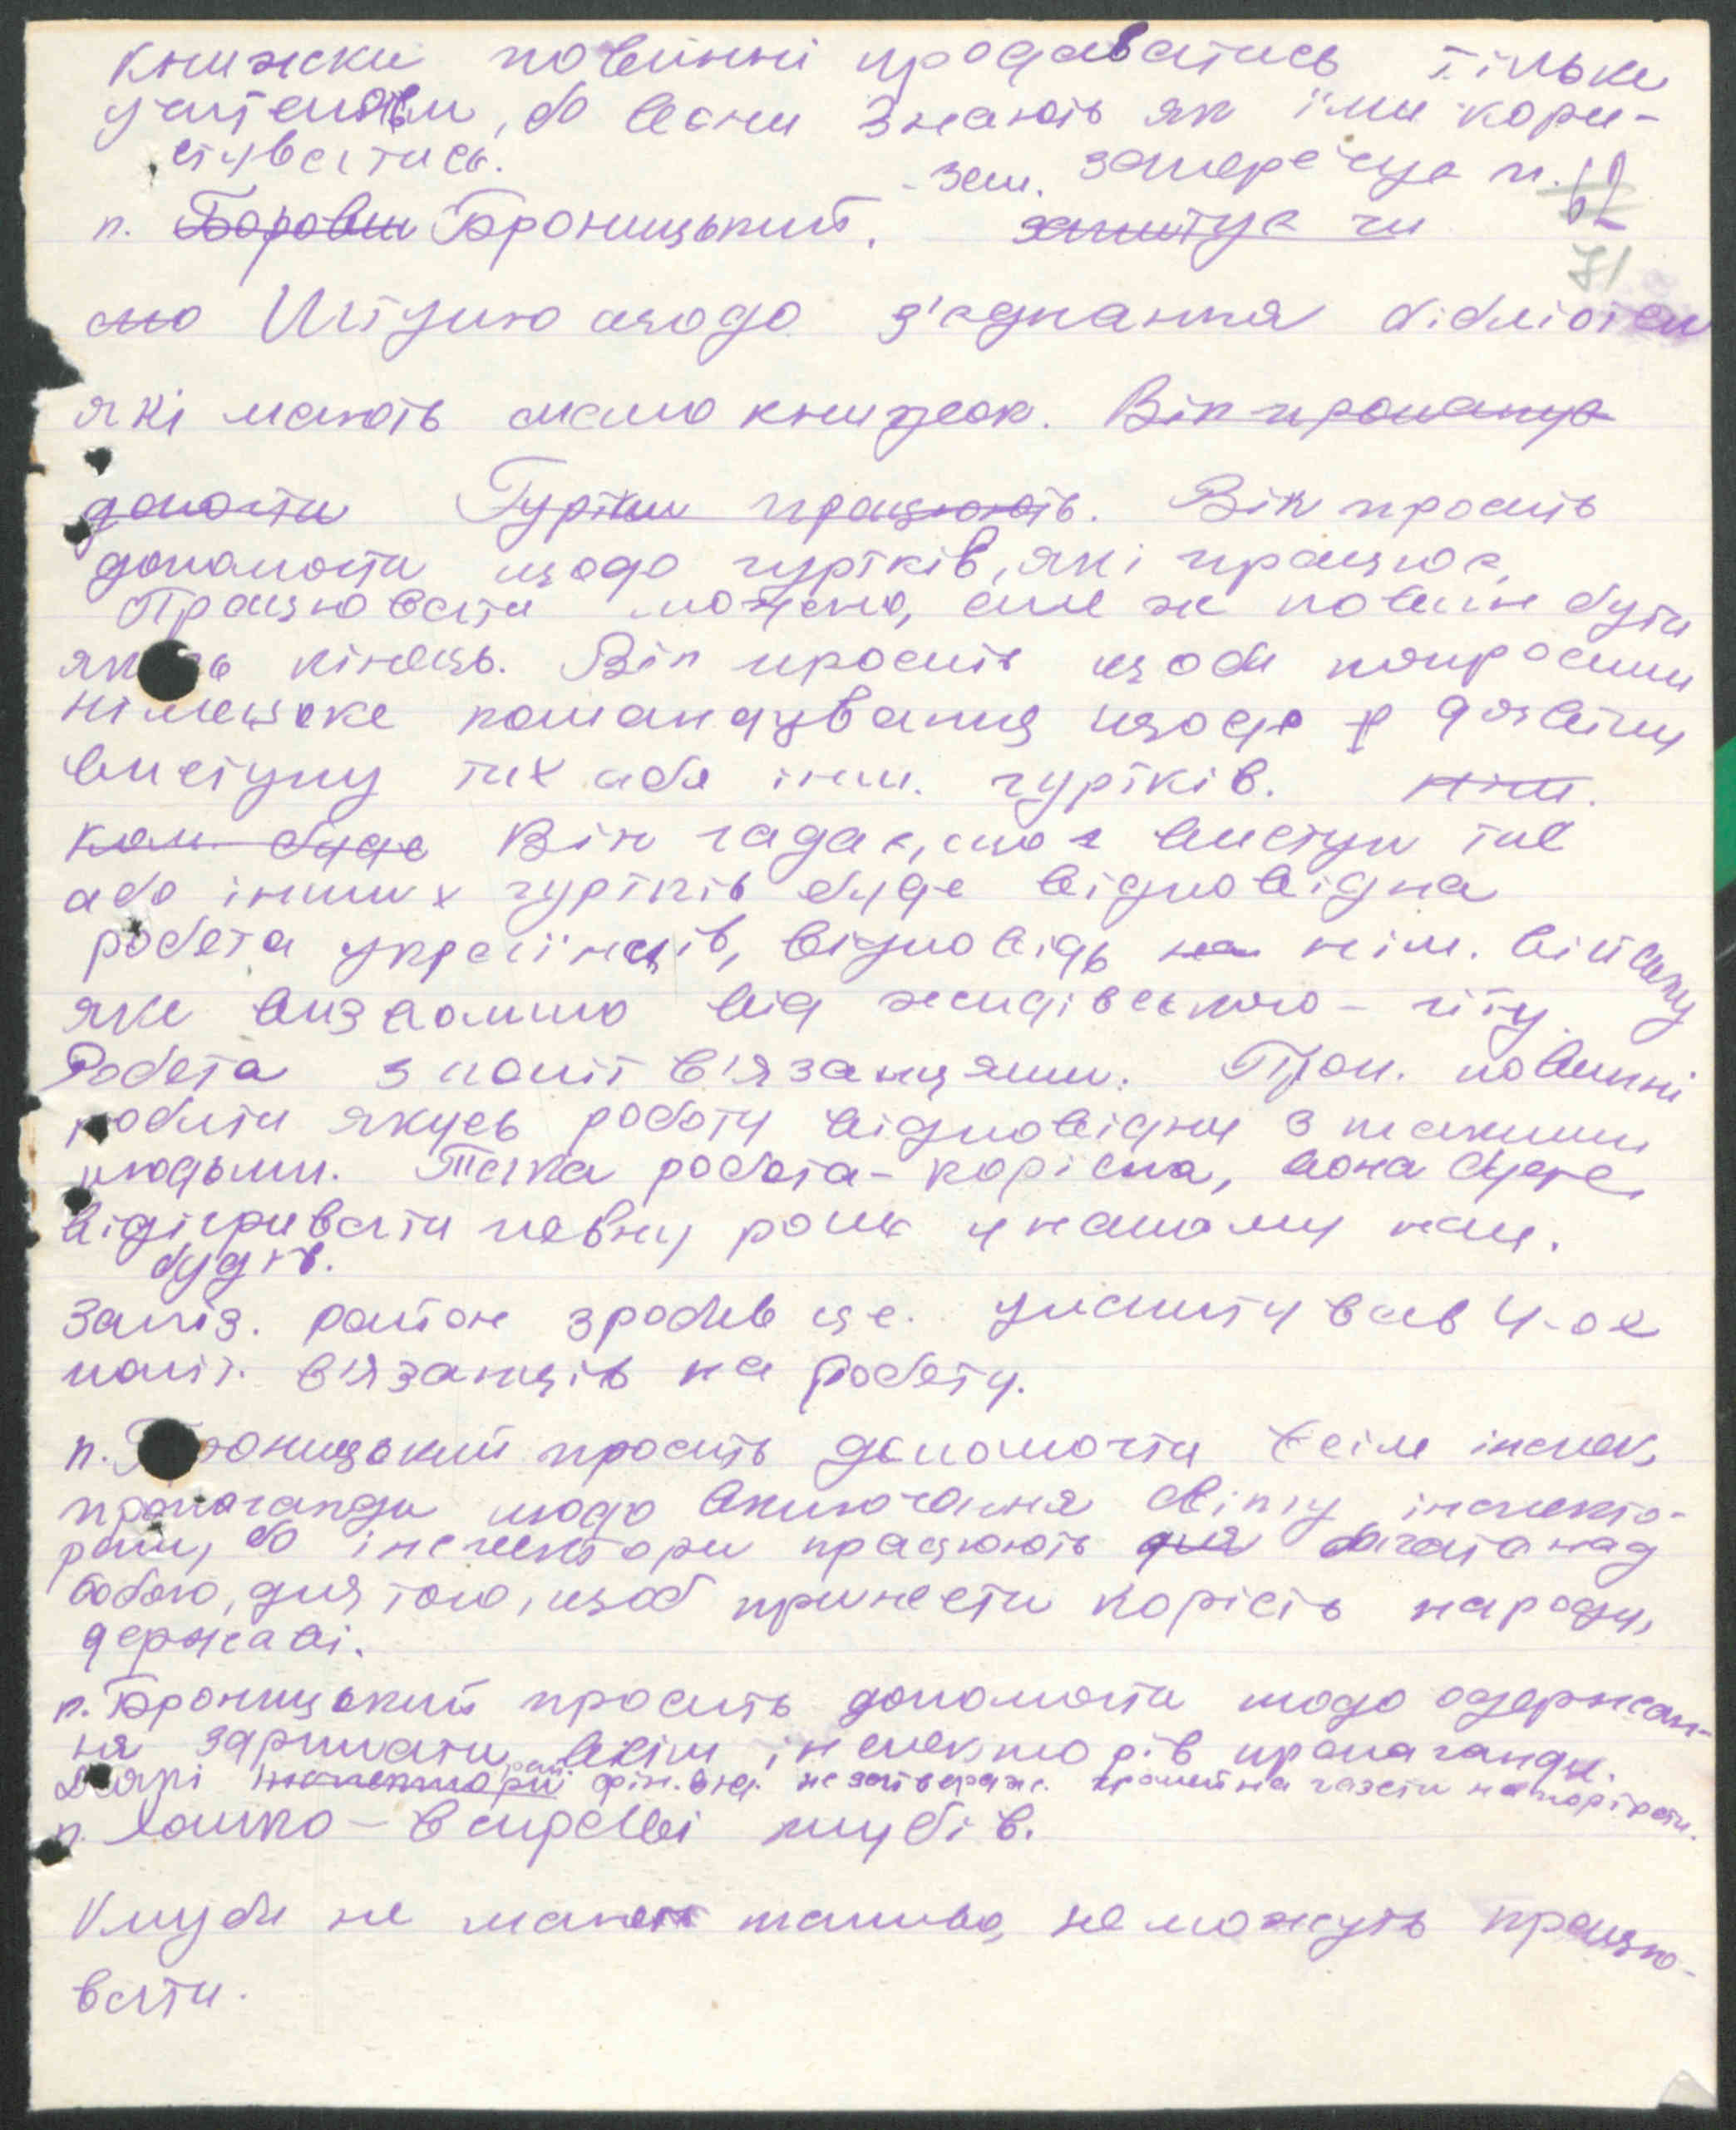 книжки повинні продаватись тільки
учителям, бо вони знають як їми кори-
стуватись.
- Зем. заперечує п.
62
п. Борови Броницький. запитує чи
71
що Шітуню щодо з'єднання бібліотеки
які мають мало книжок. Він пропонує
допомогти Гуртки працюють. Він просить
допомогти щодо гуртків, які працює,
Працювати можено, але ж повинн бути
якась кінець. Він просить щоби попросили
німецьке командування щодо дозвілу
виступу тих або інш. гуртків. нім.
ком. буде Він гадає, що виступ тих
або інших гуртків буде відповідна
робота українців, відповідь на нім. війську
яке визволило від жидівського - гніту.
Робота з політ в'язанцями. Проп. повинні
робити якусь роботу відповідну з такими
людьми. Така робота - корісна, вона буде
відігривати певну роль у нашому нац.
будів.
Заліз. район зробив це. улаштував 4-ох
політ. в'язанців на роботу.
п. Броницький просить допомогти всім інспек.
пропаганди щодо включання світу інспекто-
рам, бо інспектори працюють для багато над
собою, для того, щоб принести корість народу,
державі.
п. Броницький просить допомогти щодо одержан-
ня зарплати всім інспекторів пропаганди.
Деякі інспектори рай фін. від. не затвердже. кромей на газети на портрети.
п. Лошко - в справі клубів.
Клуби не мают палива, не можуть працю-
вати.